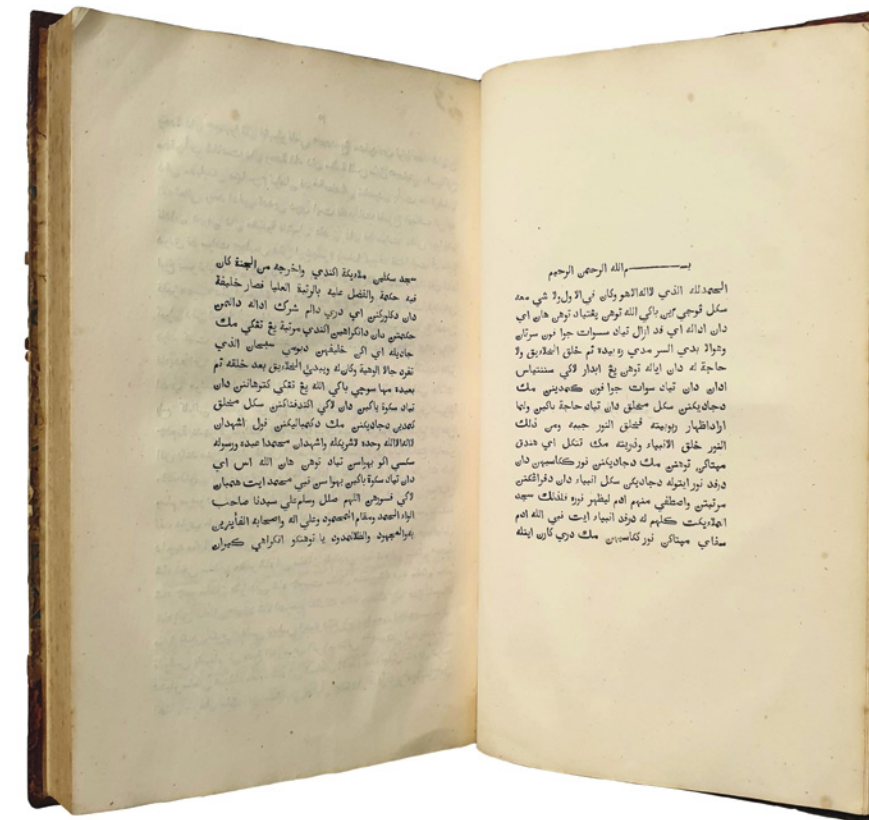 بسم الله الرحمن الرحيم
الحمدلله الذي لااله الاهو وكان في الاول ولا شي معه
سكل فوجي بين باكي الله توهن يغتياد توهن هان اي
دان اداله اي فد ازال تياد سوات جوا فون سرتان
وهوالا بدي السر مدي بعده ثم خلق الخلاءيق ولا
حاجة له دان اياله توهن يغ ابدار لاكي سنتياس
ادان دان تياد سوات جوا فون كمدينن مك
دجاديكنن سكل مخلق دان تياد حاجة باكين ولما
اراداظهار ربوبيته فخلق النور حبيبه ومن ذلك
النور خلق الانبياء وذريته مك تتكل اي هندق
مپتاكن توهنن مك دجاديكنن نور ككاسيهن دان
درفد نور ايتوله دجاديكن سكل انبياء دان دفراڠكتن
مرتبتن واصطفي منهم ادم ليظهر نوره فلذلك سجد
الملاءيكت كلهم له درفد انبياء ايت نبي الله ادم
سفاي مپتاكن نور ككاسيهن مك دري كارن اينله
سجد سكلين ملاءيكة اكندي واخرجه من الجنة كان
فيه حكمة والفضل عليه بالرتبة العليا فصار خليفة
دان دكلوركنن اي دري دالم شرك اداله دالمن
حكمتن دان دانكراهين اكندي مرتبة يڠ تڠكي مك
جاديله اي اكن خليفهن دبومي سبحان الذي
تفرد جالا الوهية وكان له ويبدئ الخلاءيق بعد خلقه ثم
يعيده مها سوچي باكي الله يڠ تڠكي كتوهانن دان
تياد سكوة باكين دان لاكي اكندفناكنن سكل مخلق
كمدين دجاديكنن مك دكمباليكنن فول اشهدان
لااله الاالله وحده لاشريكله واشهدان محمدا عبده ورسوله
سكسي اكو بهواسن تياد توهن هان الله اس اي
دان تياد سكوة باكين بهواسن نبي محمد ايت همبان
لاكي فسورهن اللهم صلل وسلم علي سيدنا صاحب
الواء الحمد ومقام المحمود وعلي اله واصحابه الفاءيزين
يا توهنكو انكراهي كيران